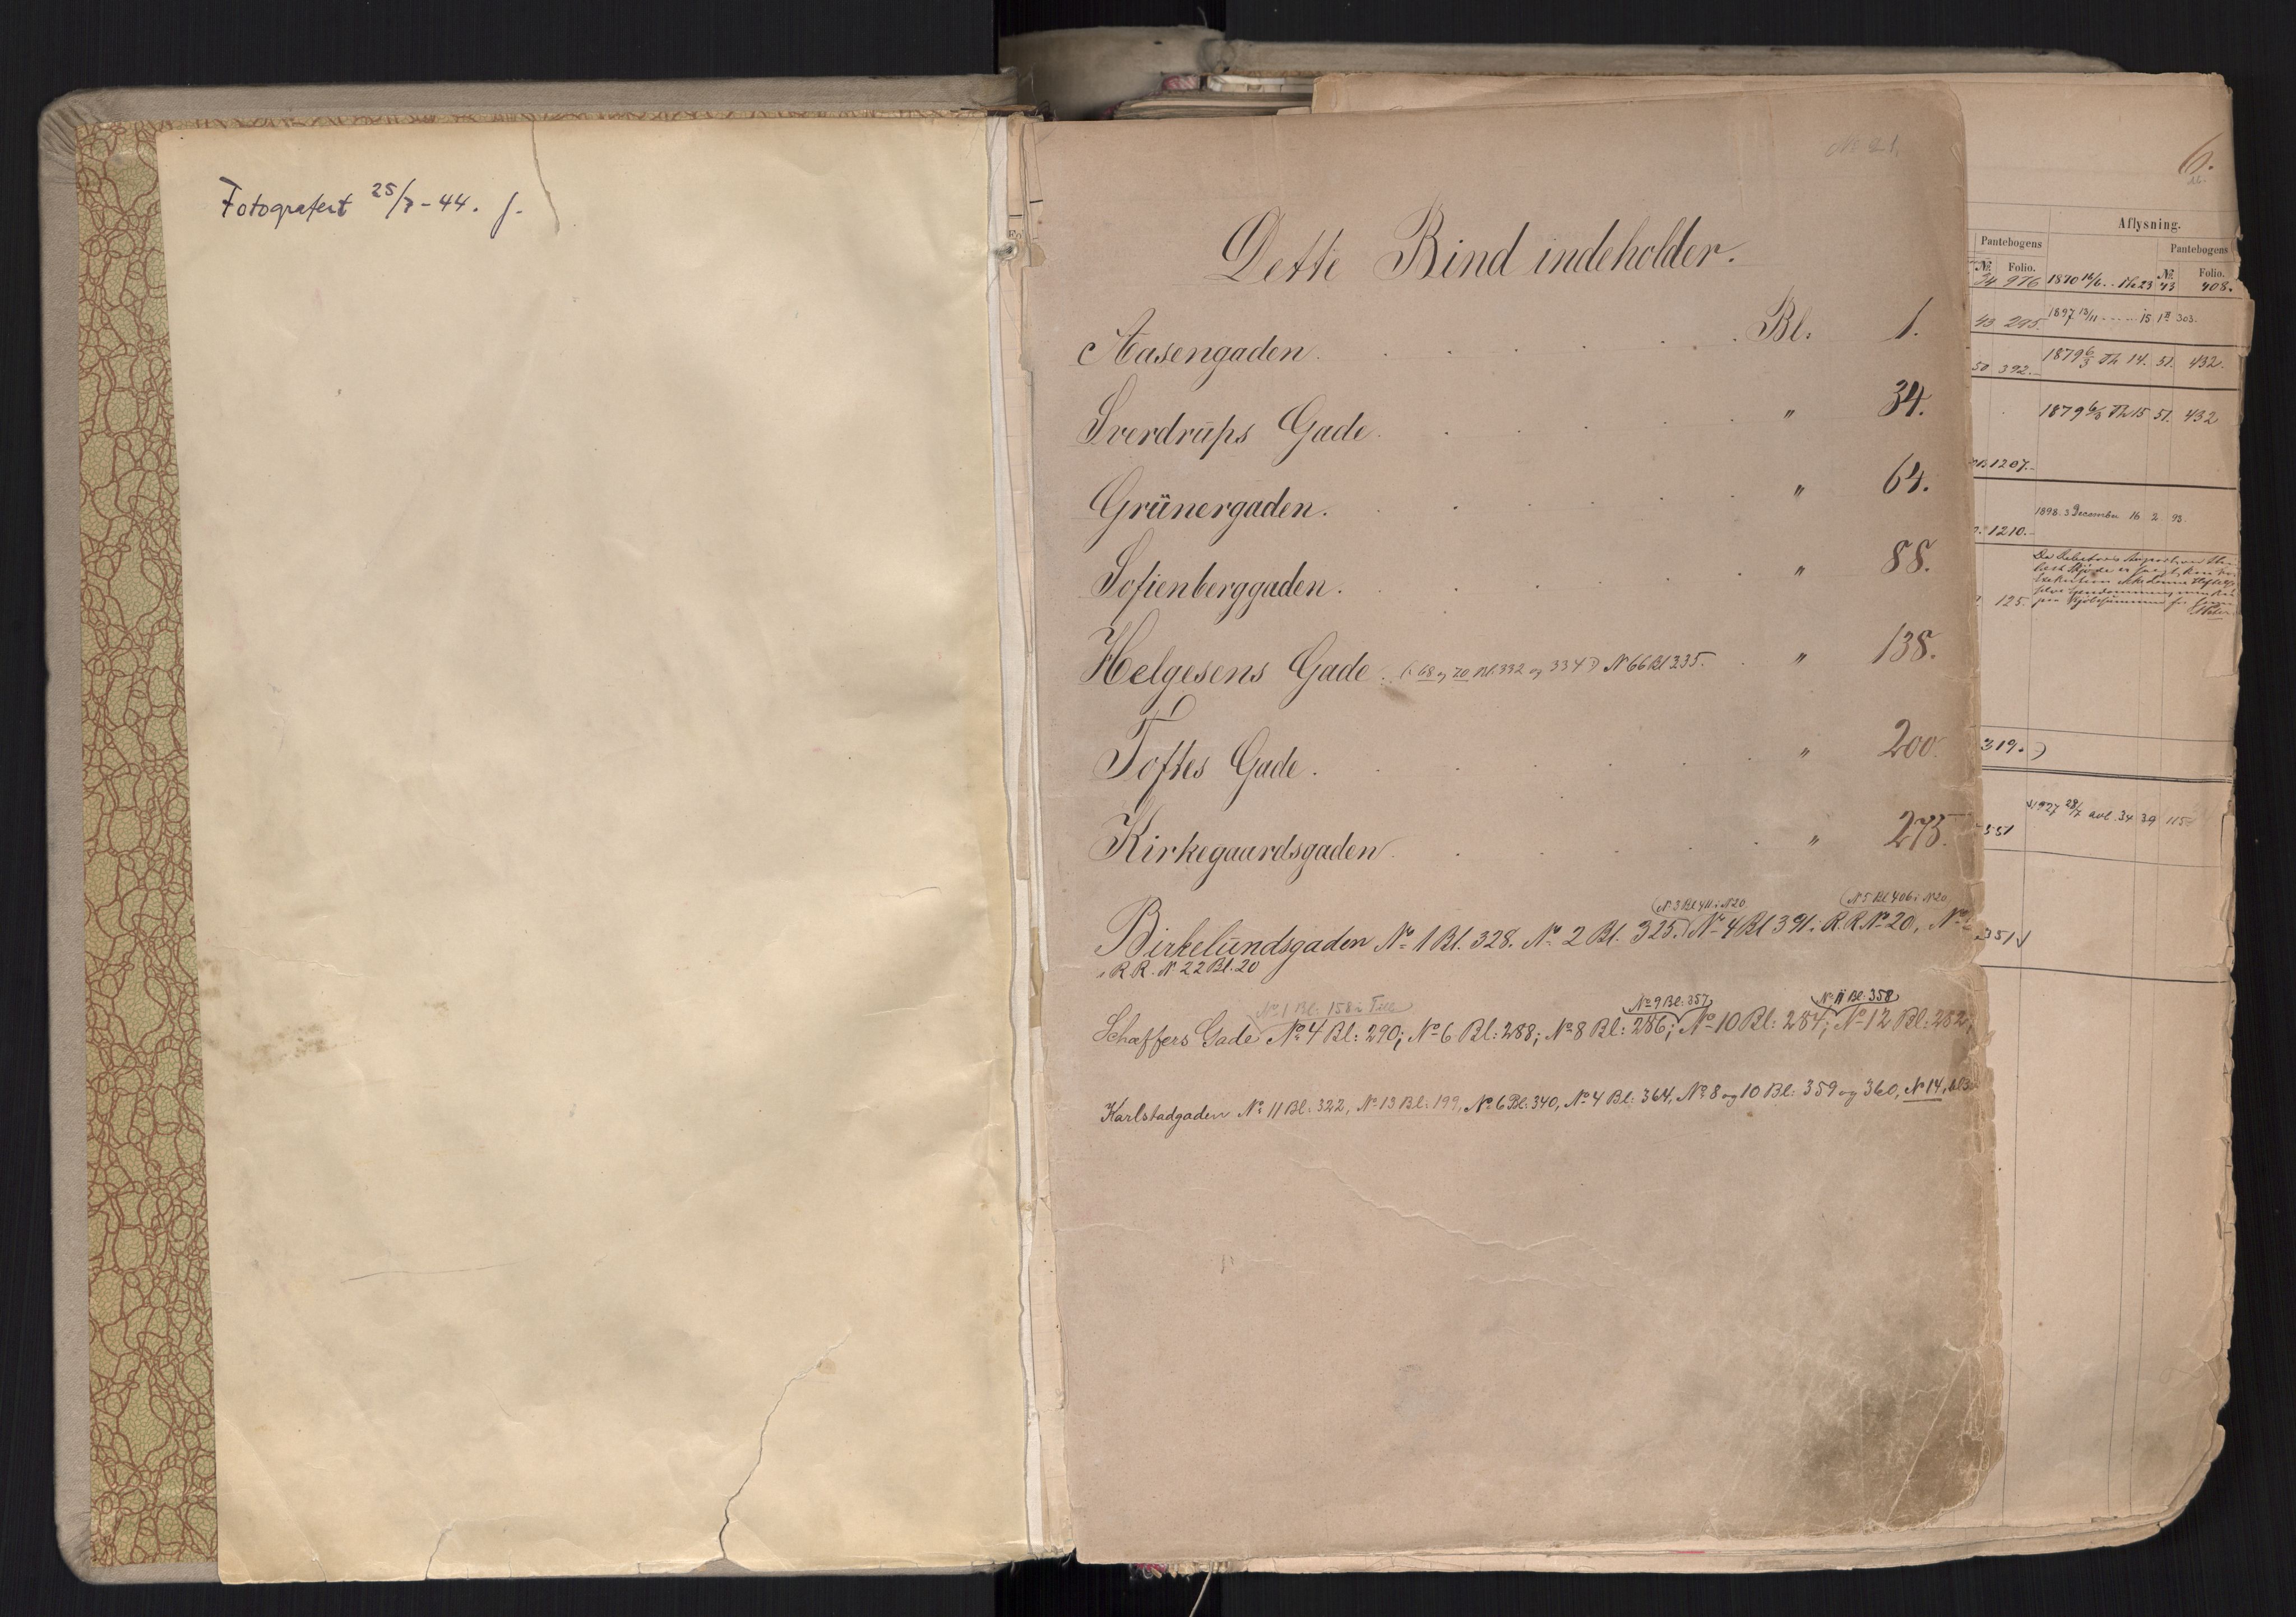 Fotografert 25/7-44. J.
No 21.
Dette Bind indeholder.
Aasengaden. Bl. 1.
Sverdrups Gade. " 34.
Grünergaden. " 64.
Sofienberggaden. " 88.
Helgesens Gade. (68 og 70 Bl. 332 og 334) N 66 Bl 335. " 138.
Toftes Gade. " 200.
Kirkegaardsgaden. " 275.
(No 3 Bl 411 i N 20 (No 5 Bl 406 i N 20
Birkelundsgaden No 1 Bl. 328. No 2 Bl. 325.) No 4 Bl 391. R.R No 20, No
i R R. N 22 Bl. 20
No 1 Bl. 158 i No 9 Bl: 357, No 11 Bl: 358
Schæffers Gade No 4 Bl: 290; No 6 Bl: 288; No 8 Bl: 286; No 10 Bl: 284; No 12 Bl: 282;
Karlstadgaden No 11 Bl: 322, No 13 Bl: 199, No 6 Bl: 340, No 4 Bl: 364, No 8 og 10 Bl: 359 og 360, N 14,
6.
Aflysning.
Pantebogens
Pantebogens
No Folio.
No Folio.
34 976 1870 16/6 Th 23 43 408.
43 295. 1897 13/11 15 1 II 303.
50 392. 1879 6/3 Th 14. 51. 432.
1879 6/3 Th 15 51. 432
1207.
1898. 3 December 16 2 93.
1210.
125.
319.
1927 28/7 avl. 34 39 115
351
351